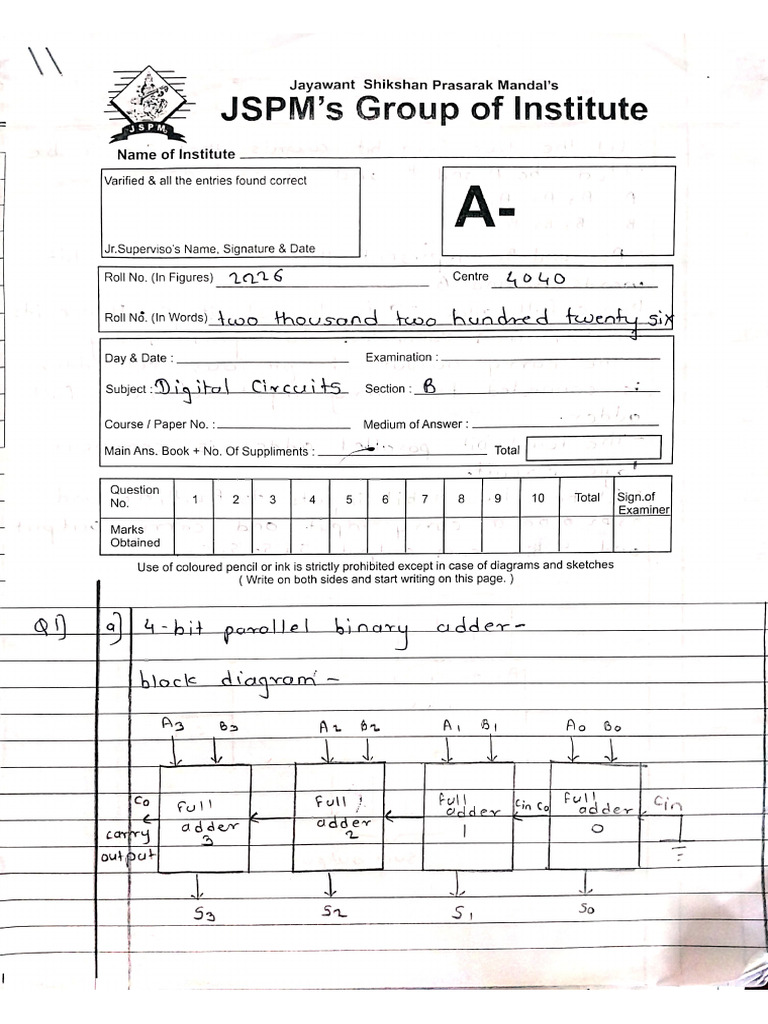 \\
Jayawant Shikshan Prasarak Mandal's
JSPM's Group of Institute
JSPM
Name of Institute
Varified & all the entries found correct
A-
Jr.Superviso's Name, Signature & Date
Roll No. (In Figures) 2226 Centre 4040
Roll No. (In Words) two thousand two hundred twenty six
Day & Date : Examination :
Subject : Digital Circuits Section : B
Course / Paper No. : Medium of Answer :
Main Ans. Book + No. Of Suppliments : Total
Question No. 1 2 3 4 5 6 7 8 9 10 Total Sign.of Examiner
Marks Obtained
Use of coloured pencil or ink is strictly prohibited except in case of diagrams and sketches
( Write on both sides and start writing on this page. )
Q1] a] 4-bit parallel binary adder-
block diagram -
A3 B3 A2 B2 A1 B1 A0 B0
Co Full Full Full Cin Co Full Cin
carry adder adder adder adder
output 3 2 1 0
S3 S2 S1 S0